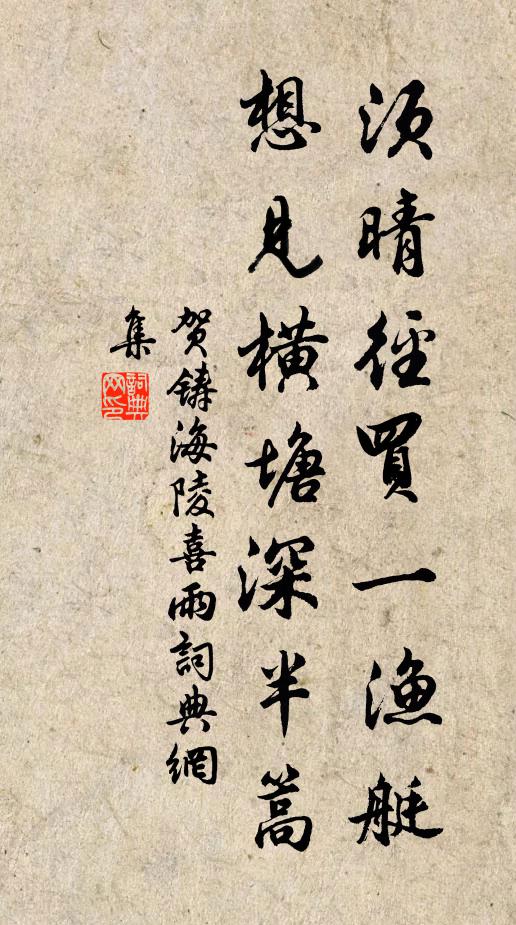 須晴徑買一漁艇
想見橫塘深半篙
賀鑄海陵喜雨詞典網
集
詞典
網印